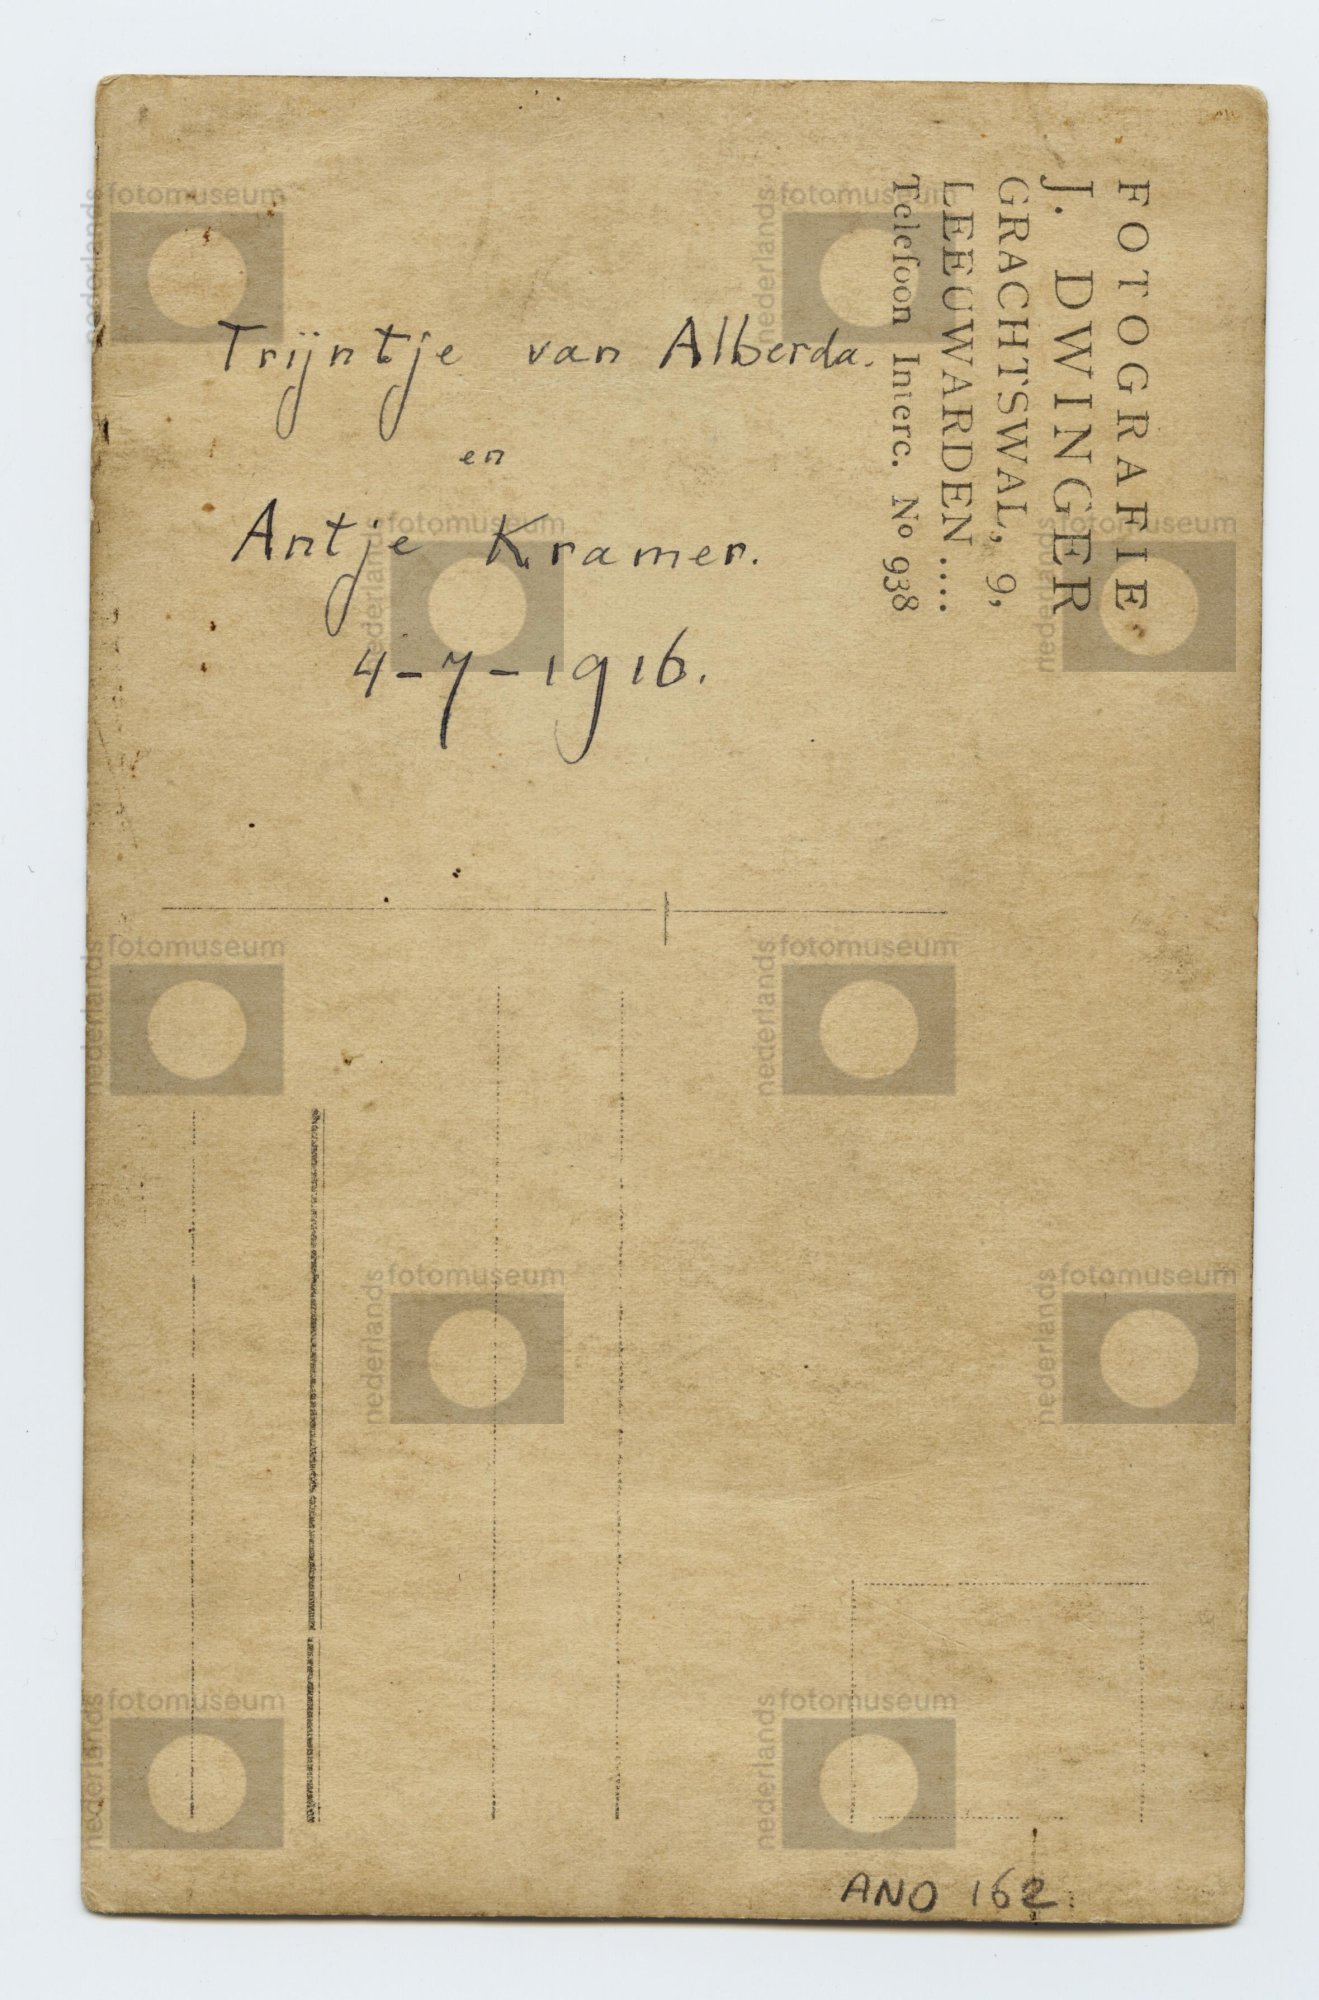 Trijntje van Alberda.
en
Antje Kramer.
4-7-1916.
FOTOGRAFIE
J. DWINGER
GRACHTSWAL, 9,
LEEUWARDEN ....
Telefoon Interc. No 938
ANO 162.
nederlands fotomuseum
nederlands fotomuseum
nederlands fotomuseum
nederlands fotomuseum
nederlands fotomuseum
nederlands fotomuseum
nederlands fotomuseum
nederlands fotomuseum
nederlands fotomuseum
nederlands fotomuseum